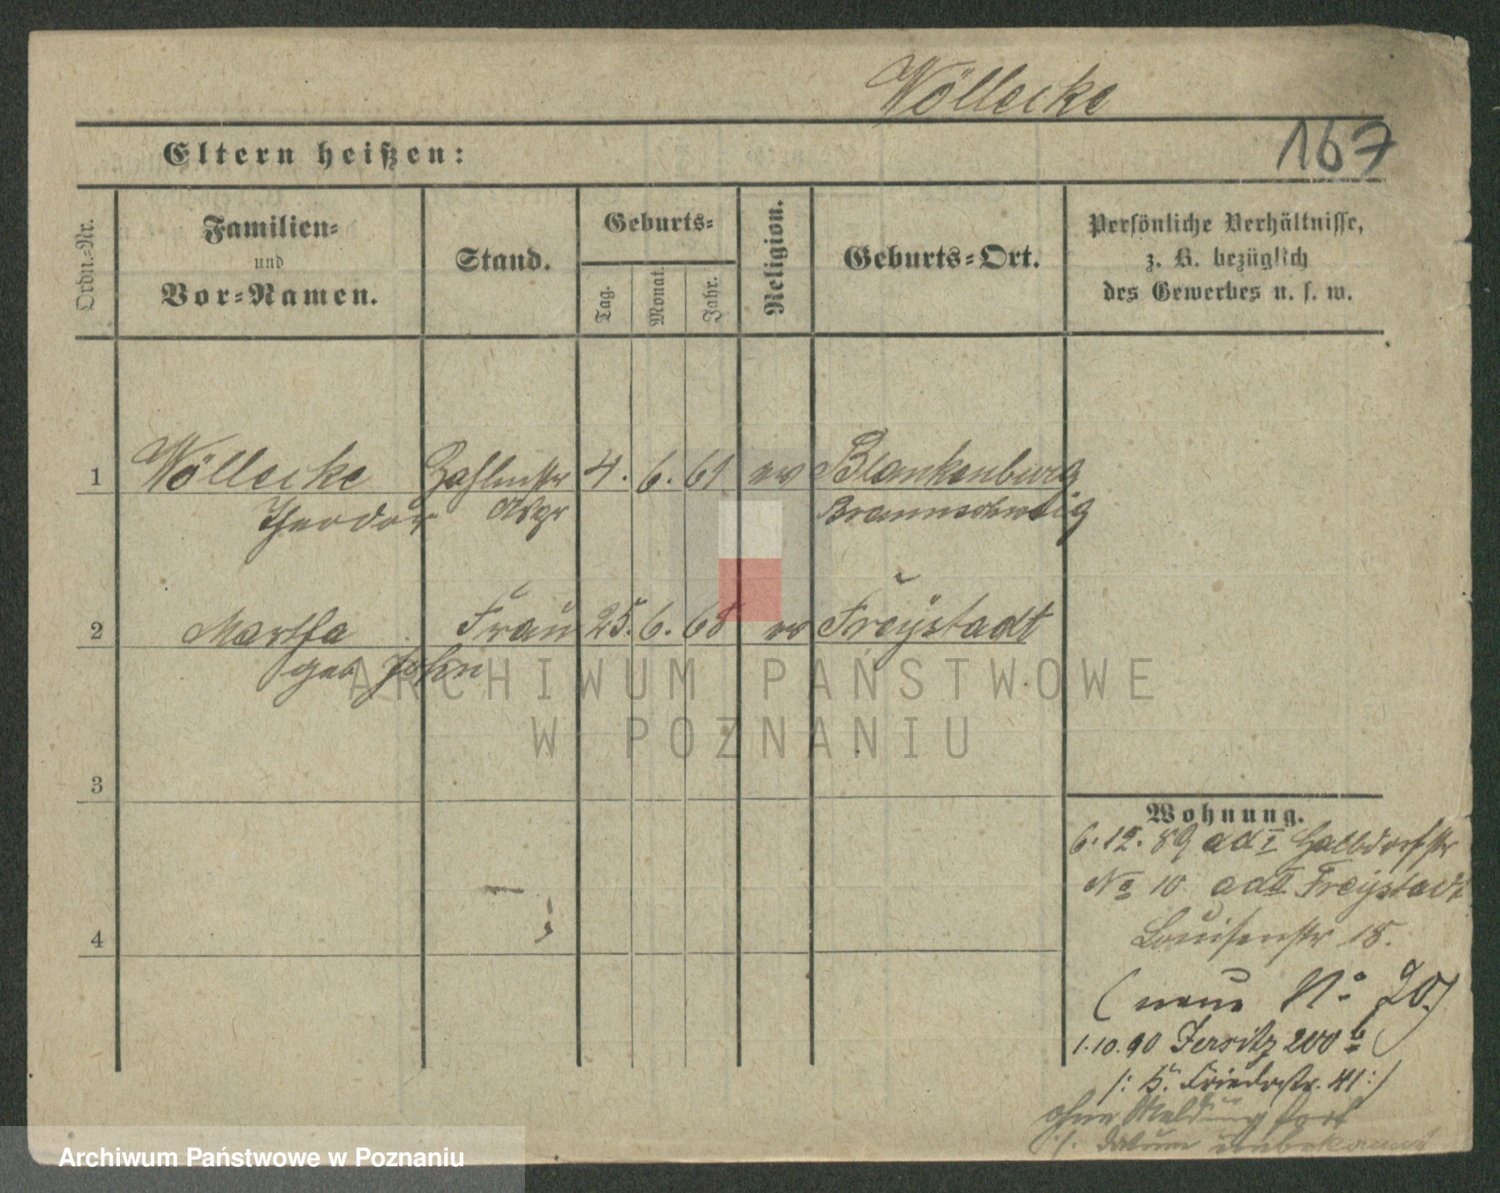 Wöllecke
167
Eltern heißen:
Ordn.-Nr.
Familien-
und
Vor-Namen.
Stand.
Geburts-
Tag.
Monat.
Jahr.
Religion.
Geburts-Ort.
Persönliche Verhältnisse,
z. B. bezüglich
des Gewerbes u. s. w.
1 Wöllecke Zahlmstr 4. 6. 61 ev Blankenburg
Theodor Aspr Braunschweig
2 Martha Frau 25. 6. 68 ev Freystadt
geb John
ARCHIWUM PAŃSTWOWE
W POZNANIU
3
4
Wohnung.
6. 12. 89 ad I Halbdorfstr
No 10 ad II Freystadt
Louisenstr 18.
(neue No 20)
1.10.90 Jersitz 200 b
/: b. Friedrstr. 41 :/
ohne Meldung fort
Datum unbekannt
Archiwum Państwowe w Poznaniu